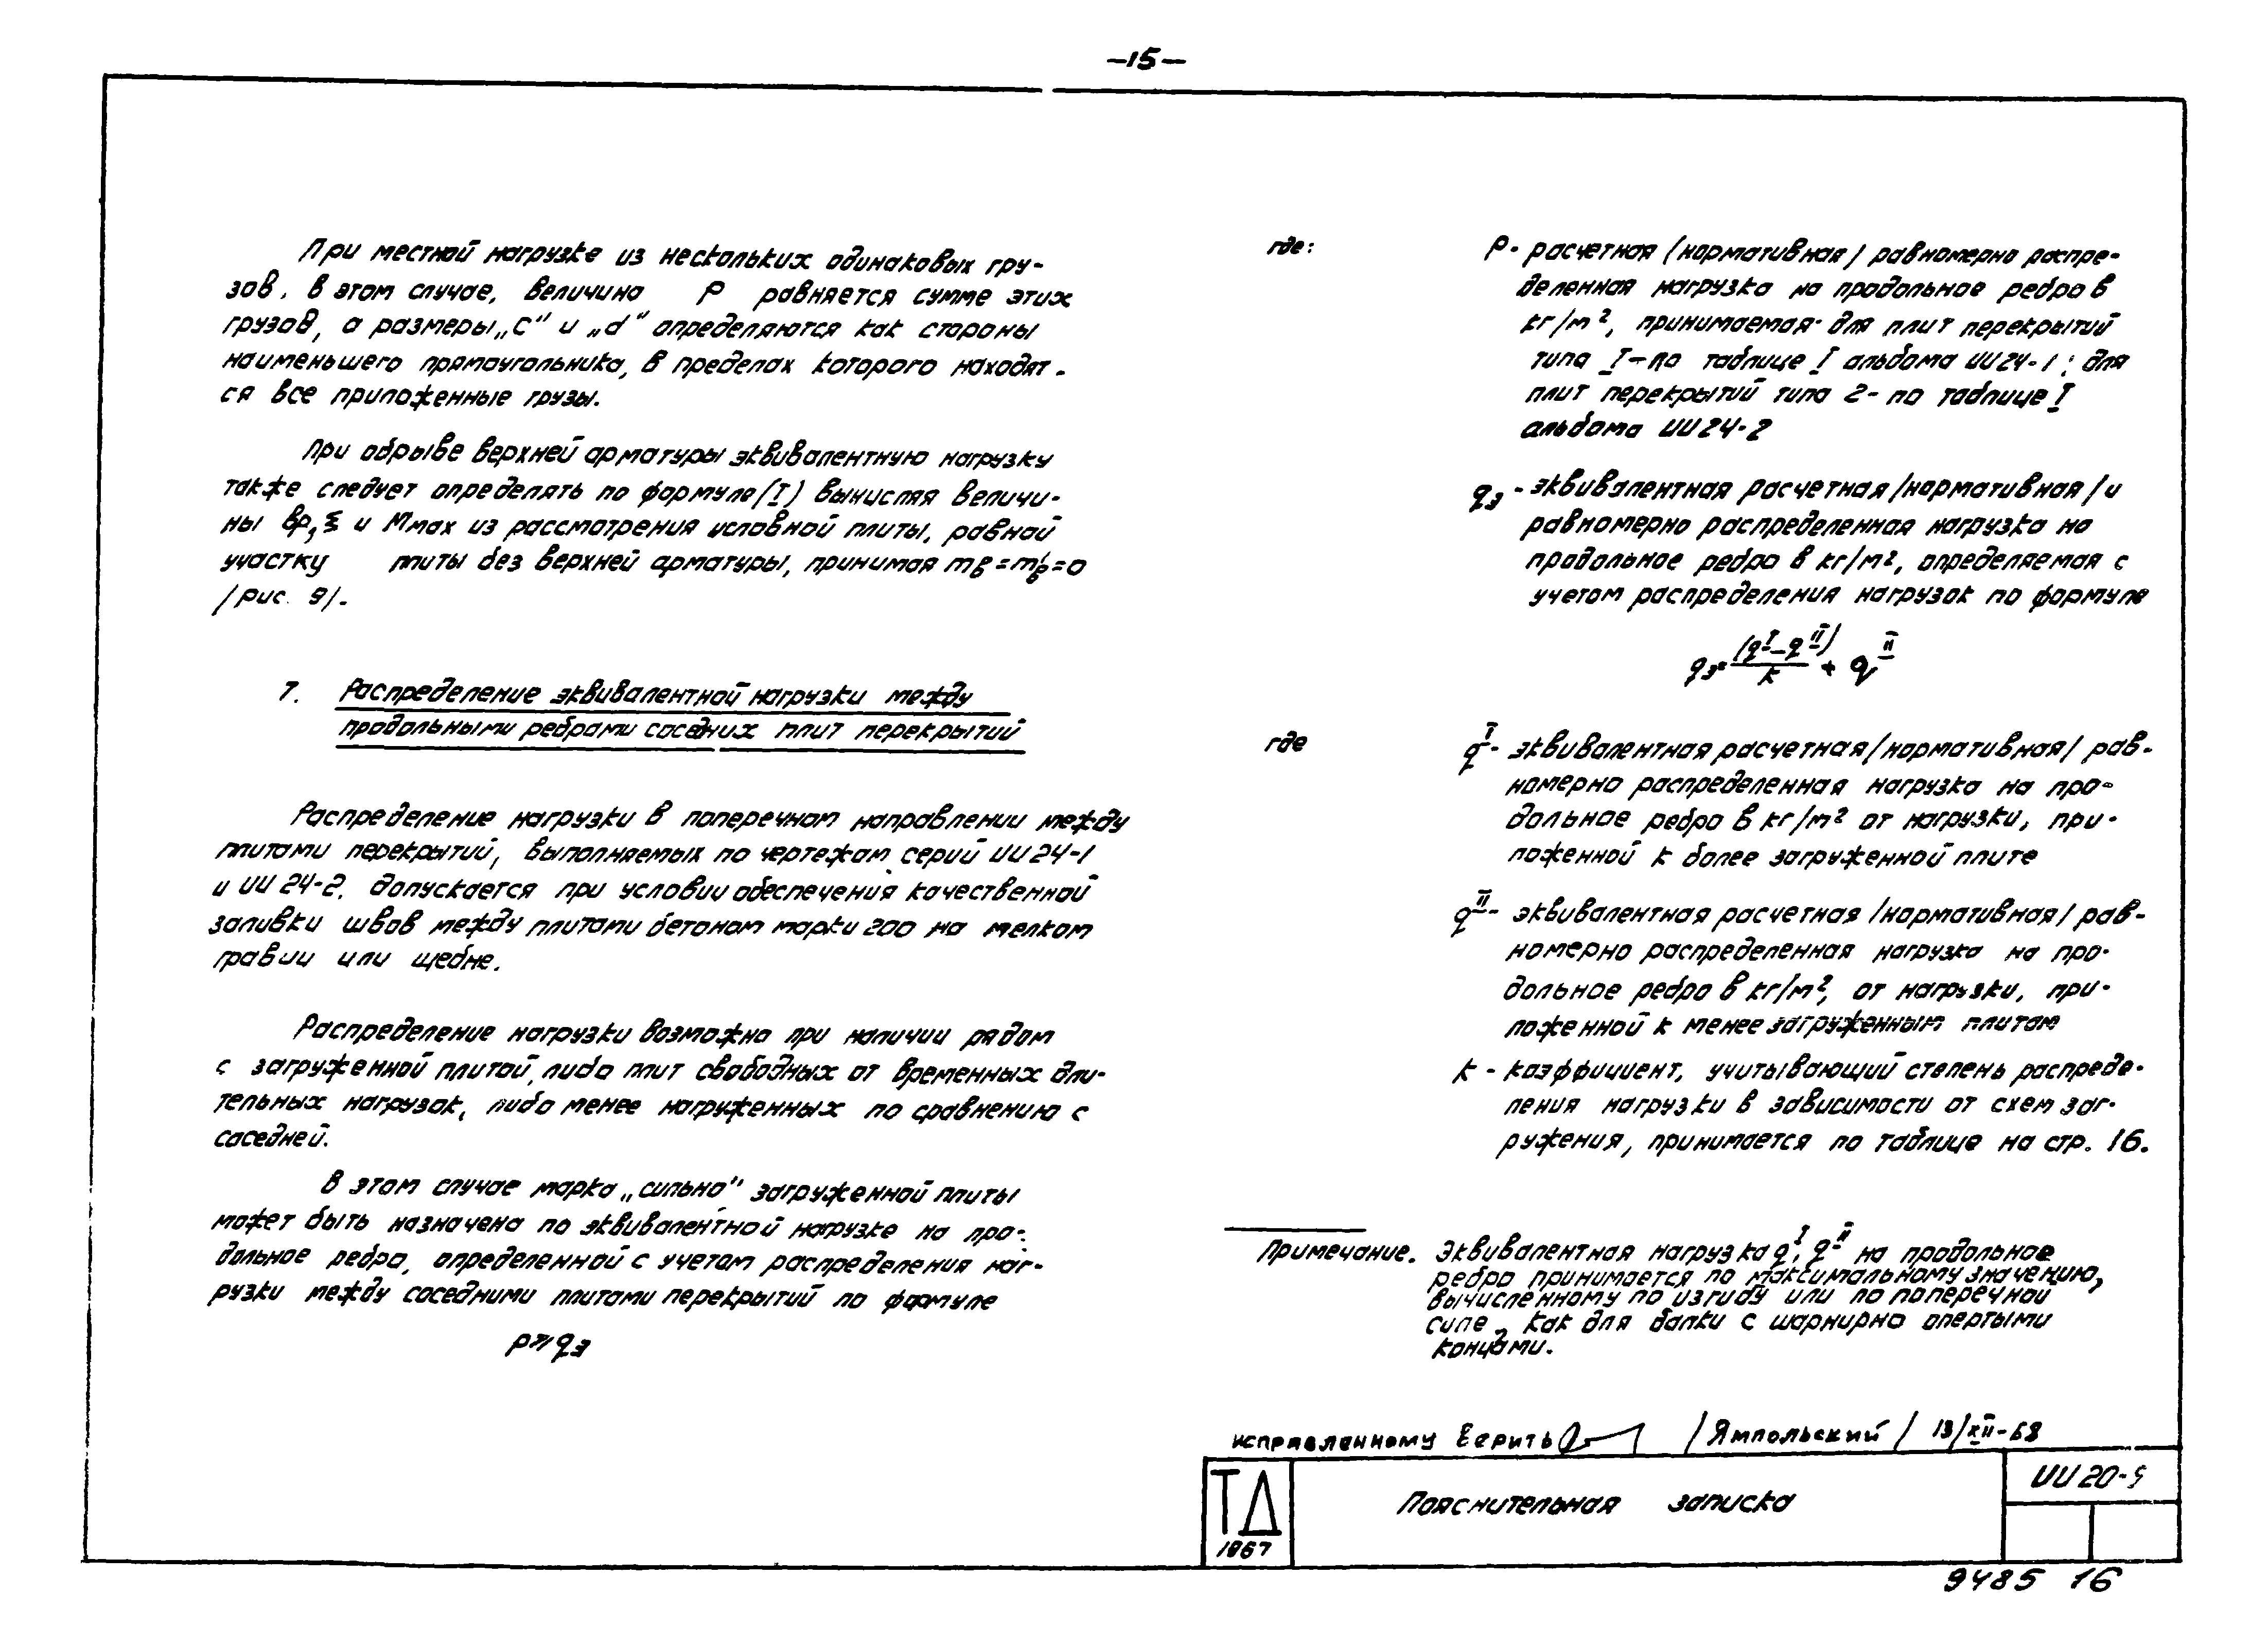 —15—
При местной нагрузке из нескольких одинаковых гру-
зов, в этом случае, величина P равняется сумме этих
грузов, а размеры „c“ и „d“ определяются как стороны
наименьшего прямоугольника, в пределах которого находят-
ся все приложенные грузы.
При обрыве верхней арматуры эквивалентную нагрузку
также следует определять по формуле (I) вычисляя величи-
ны вр, ξ и Mмах из рассмотрения условной плиты, равной
участку плиты без верхней арматуры, принимая mв = m'в = 0
/рис. 9/.
7. Распределение эквивалентной нагрузки между
продольными ребрами соседних плит перекрытий
Распределение нагрузки в поперечном направлении между
плитами перекрытий, выполняемых по чертежам серий ИИ 24-1
и ИИ 24-2, допускается при условии обеспечения качественной
заливки швов между плитами бетоном марки 200 на мелком
гравии или щебне.
Распределение нагрузки возможно при наличии рядом
с загруженной плитой, либо плит свободных от временных дли-
тельных нагрузок, либо менее нагруженных по сравнению с
соседней.
В этом случае марка „сильно“ загруженной плиты
может быть назначена по эквивалентной нагрузке на про-
дольное ребро, определенной с учетом распределения наг-
рузки между соседними плитами перекрытий по формуле
P ⩾ qэ
где: P - расчетная (нормативная) равномерно распре-
деленная нагрузка на продольное ребро в
кг/м², принимаемая для плит перекрытий
типа I - по таблице I альбома ИИ 24-1; для
плит перекрытий типа 2 - по таблице I
альбома ИИ 24-2
qэ - эквивалентная расчетная /нормативная/ и
равномерно распределенная нагрузка на
продольное ребро в кг/м², определяемая с
учетом распределения нагрузок по формуле
qэ = (q^I - q^II)/k + q^II
где q^I - эквивалентная расчетная /нормативная/ рав-
номерно распределенная нагрузка на про-
дольное ребро в кг/м² от нагрузки, при-
ложенной к более загруженной плите
q^II - эквивалентная расчетная /нормативная/ рав-
номерно распределенная нагрузка на про-
дольное ребро в кг/м², от нагрузки, при-
ложенной к менее загруженным плитам
k - коэффициент, учитывающий степень распреде-
ления нагрузки в зависимости от схем заг-
ружения, принимается по таблице на стр. 16.
Примечание. Эквивалентная нагрузка q^I, q^II на продольное
ребро принимается по максимальному значению,
вычисленному по изгибу или по поперечной
силе, как для балки с шарнирно опертыми
концами.
исправленному верить /Ямпольский/ 13/XII-68
ТД
1967
Пояснительная записка
ИИ 20-9
9485 16